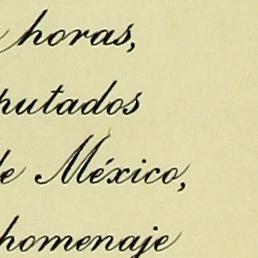 horas,
putados
de México,
homenaje